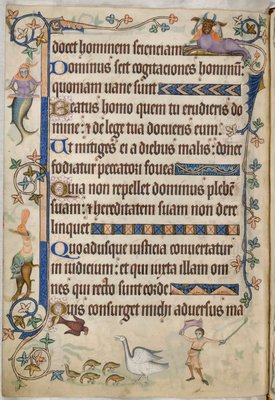 docet hominem scienciam
Dominus scit cogitaciones hominū:
quoniam uane sunt
Beatus homo quem tu erudieris do
mine: & de lege tua docueris eum.
Ut mitiges ei a diebus malis: donec
fodiatur peccatori fouea
Quia non repellet dominus plebem
suam: & hereditatem suam non dere
linquet
Quo adusque iusticia conuertatur
in iudicium: et qui iuxta illam om
nes qui recto sunt corde
Quis consurget michi aduersus ma